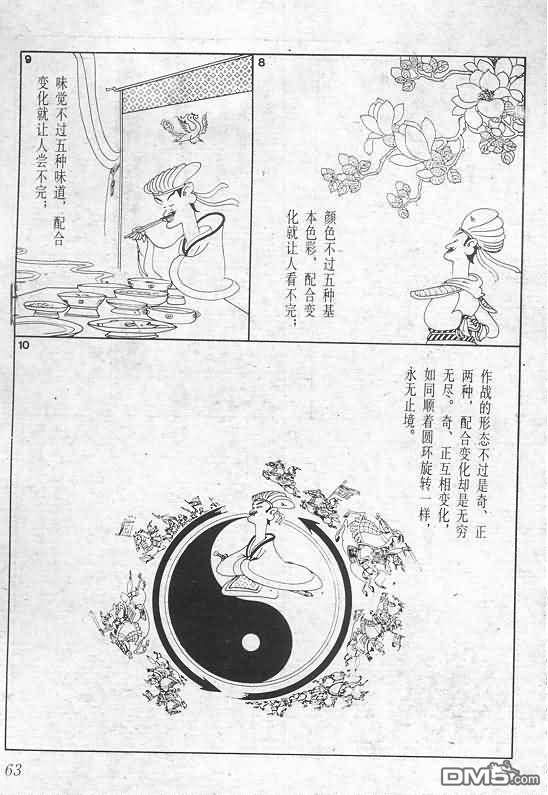 8
颜色不过五种基
本色彩，配合变
化就让人看不完；
9
味觉不过五种味道，配合
变化就让人尝不完；
10
作战的形态不过是奇、正
两种，配合变化却是无穷
无尽。奇、正互相变化，
如同顺着圆环旋转一样，
永无止境。
63
DM5.com